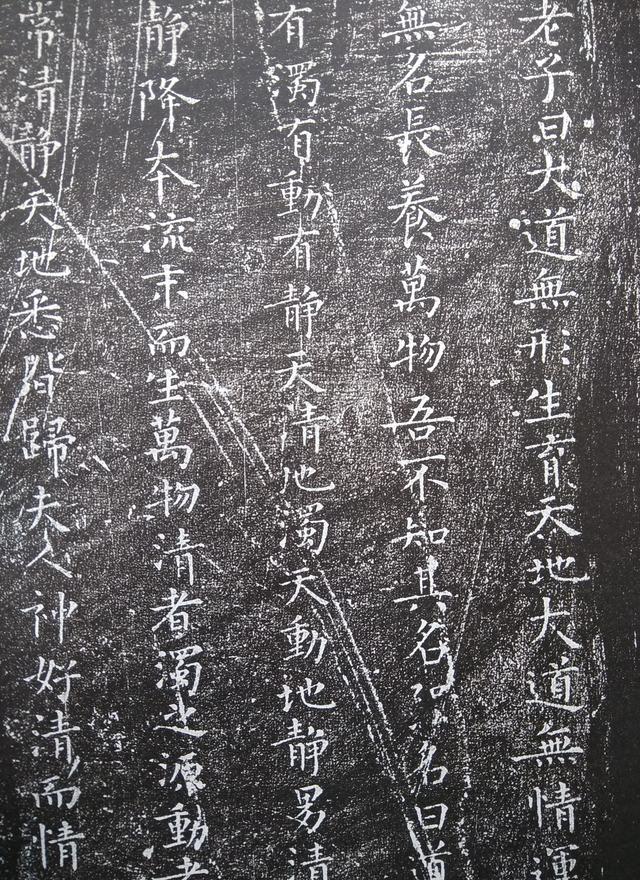 老子曰大道無形生育天地大道無情運
無名長養萬物吾不知其名强名曰道
有濁有動有静天清地濁天動地静男清
静降本流末而生萬物清者濁之源動者
常清静天地悉皆歸夫人神好清而情